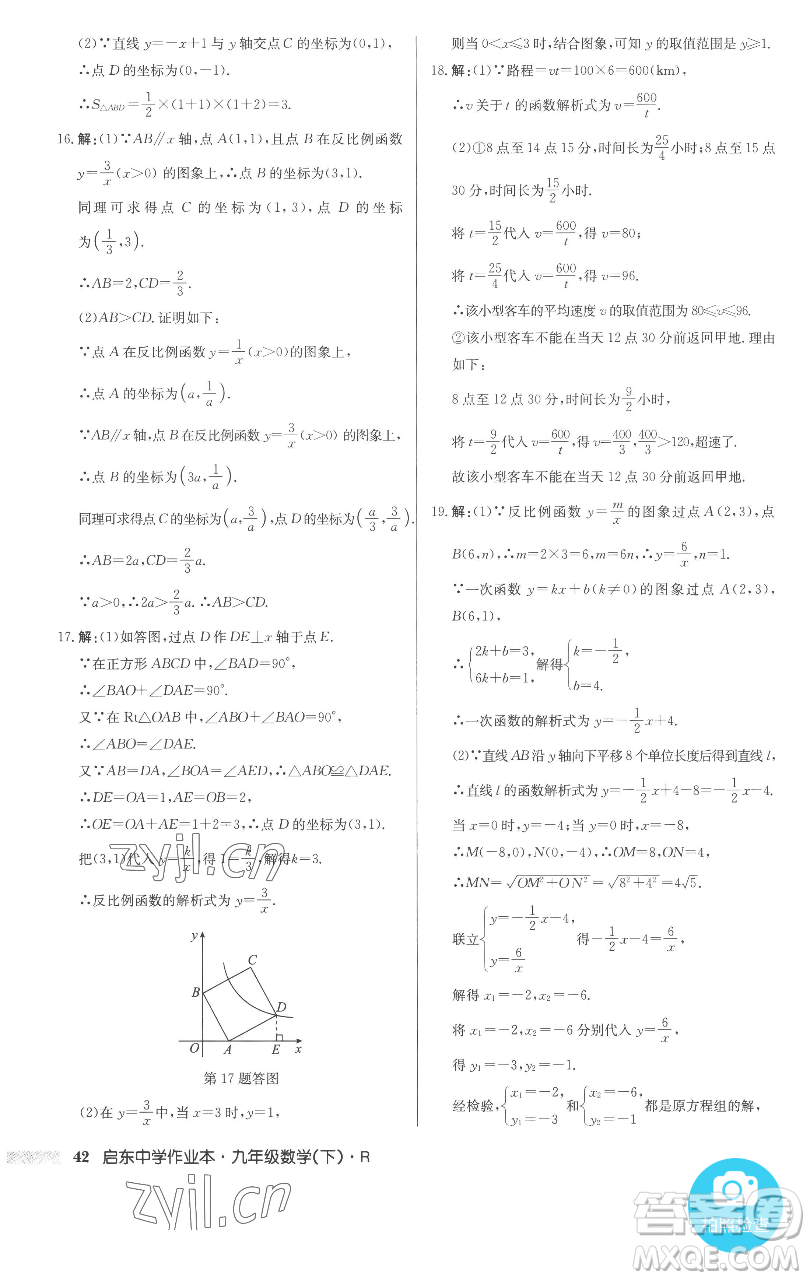 (2)∵直线 y=-x+1 与 y 轴交点 C 的坐标为(0,1),
∴点 D 的坐标为(0,-1).
∴S△ABD=1/2×(1+1)×(1+2)=3.
16. 解:(1)∵AB∥x 轴,点 A(1,1),且点 B 在反比例函数
y=3/x(x>0)的图象上,∴点 B 的坐标为(3,1).
同理可求得点 C 的坐标为(1,3),点 D 的坐标
为(1/3,3).
∴AB=2,CD=2/3.
(2)AB>CD.证明如下:
∵点 A 在反比例函数 y=1/x(x>0)的图象上,
∴点 A 的坐标为(a,1/a).
∵AB∥x 轴,点 B 在反比例函数 y=3/x(x>0)的图象上,
∴点 B 的坐标为(3a,1/a).
同理可求得点 C 的坐标为(a,3/a),点 D 的坐标为(a/3,3/a).
∴AB=2a,CD=2/3a.
∵a>0,∴2a>2/3a.∴AB>CD.
17. 解:(1)如答图,过点 D 作 DE⊥x 轴于点 E.
∵在正方形 ABCD 中,∠BAD=90°,
∴∠BAO+∠DAE=90°.
又∵在 Rt△OAB 中,∠ABO+∠BAO=90°,
∴∠ABO=∠DAE.
又∵AB=DA,∠BOA=∠AED,∴△ABO≌△DAE.
∴DE=OA=1,AE=OB=2.
∴OE=OA+AE=1+2=3,∴点 D 的坐标为(3,1).
把(3,1)代入 y=k/x,得 1=k/3,解得 k=3.
∴反比例函数的解析式为 y=3/x.
y
C
B
D
O A E x
第 17 题答图
(2)在 y=3/x 中,当 x=3 时,y=1,
则当 0<x≤3 时,结合图象,可知 y 的取值范围是 y≥1.
18. 解:(1)∵路程=vt=100×6=600(km),
∴v 关于 t 的函数解析式为 v=600/t.
(2)①8 点至 14 点 15 分,时间长为25/4小时;8 点至 15 点
30 分,时间长为15/2小时.
将 t=15/2代入 v=600/t,得 v=80;
将 t=25/4代入 v=600/t,得 v=96.
∴该小型客车的平均速度 v 的取值范围为 80≤v≤96.
②该小型客车不能在当天 12 点 30 分前返回甲地.理由
如下:
8 点至 12 点 30 分,时间长为9/2小时,
将 t=9/2代入 v=600/t,得 v=400/3,400/3>120,超速了.
故该小型客车不能在当天 12 点 30 分前返回甲地.
19. 解:(1)∵反比例函数 y=m/x 的图象过点 A(2,3),点
B(6,n),∴m=2×3=6,m=6n,∴y=6/x,n=1.
∵一次函数 y=kx+b(k≠0)的图象过点 A(2,3),
B(6,1),
∴{2k+b=3, 6k+b=1, 解得{k=-1/2, b=4.
∴一次函数的解析式为 y=-1/2x+4.
(2)∵直线 AB 沿 y 轴向下平移 8 个单位长度后得到直线 l,
∴直线 l 的函数解析式为 y=-1/2x+4-8=-1/2x-4.
当 x=0 时,y=-4,当 y=0 时,x=-8,
∴M(-8,0),N(0,-4),∴OM=8,ON=4,
∴MN=√(OM²+ON²)=√(8²+4²)=4√5.
联立{y=-1/2x-4, y=6/x 得-1/2x-4=6/x,
解得 x₁=-2,x₂=-6.
将 x₁=-2,x₂=-6 分别代入 y=6/x,
得 y₁=-3,y₂=-1.
经检验,{x₁=-2, y₁=-3 和{x₂=-6, y₂=-1 都是原方程组的解,
42 启东中学作业本·九年级数学(下)·R
zyjl.cn
zyjl.cn
答案卷
拍照检查
MXQE.COM